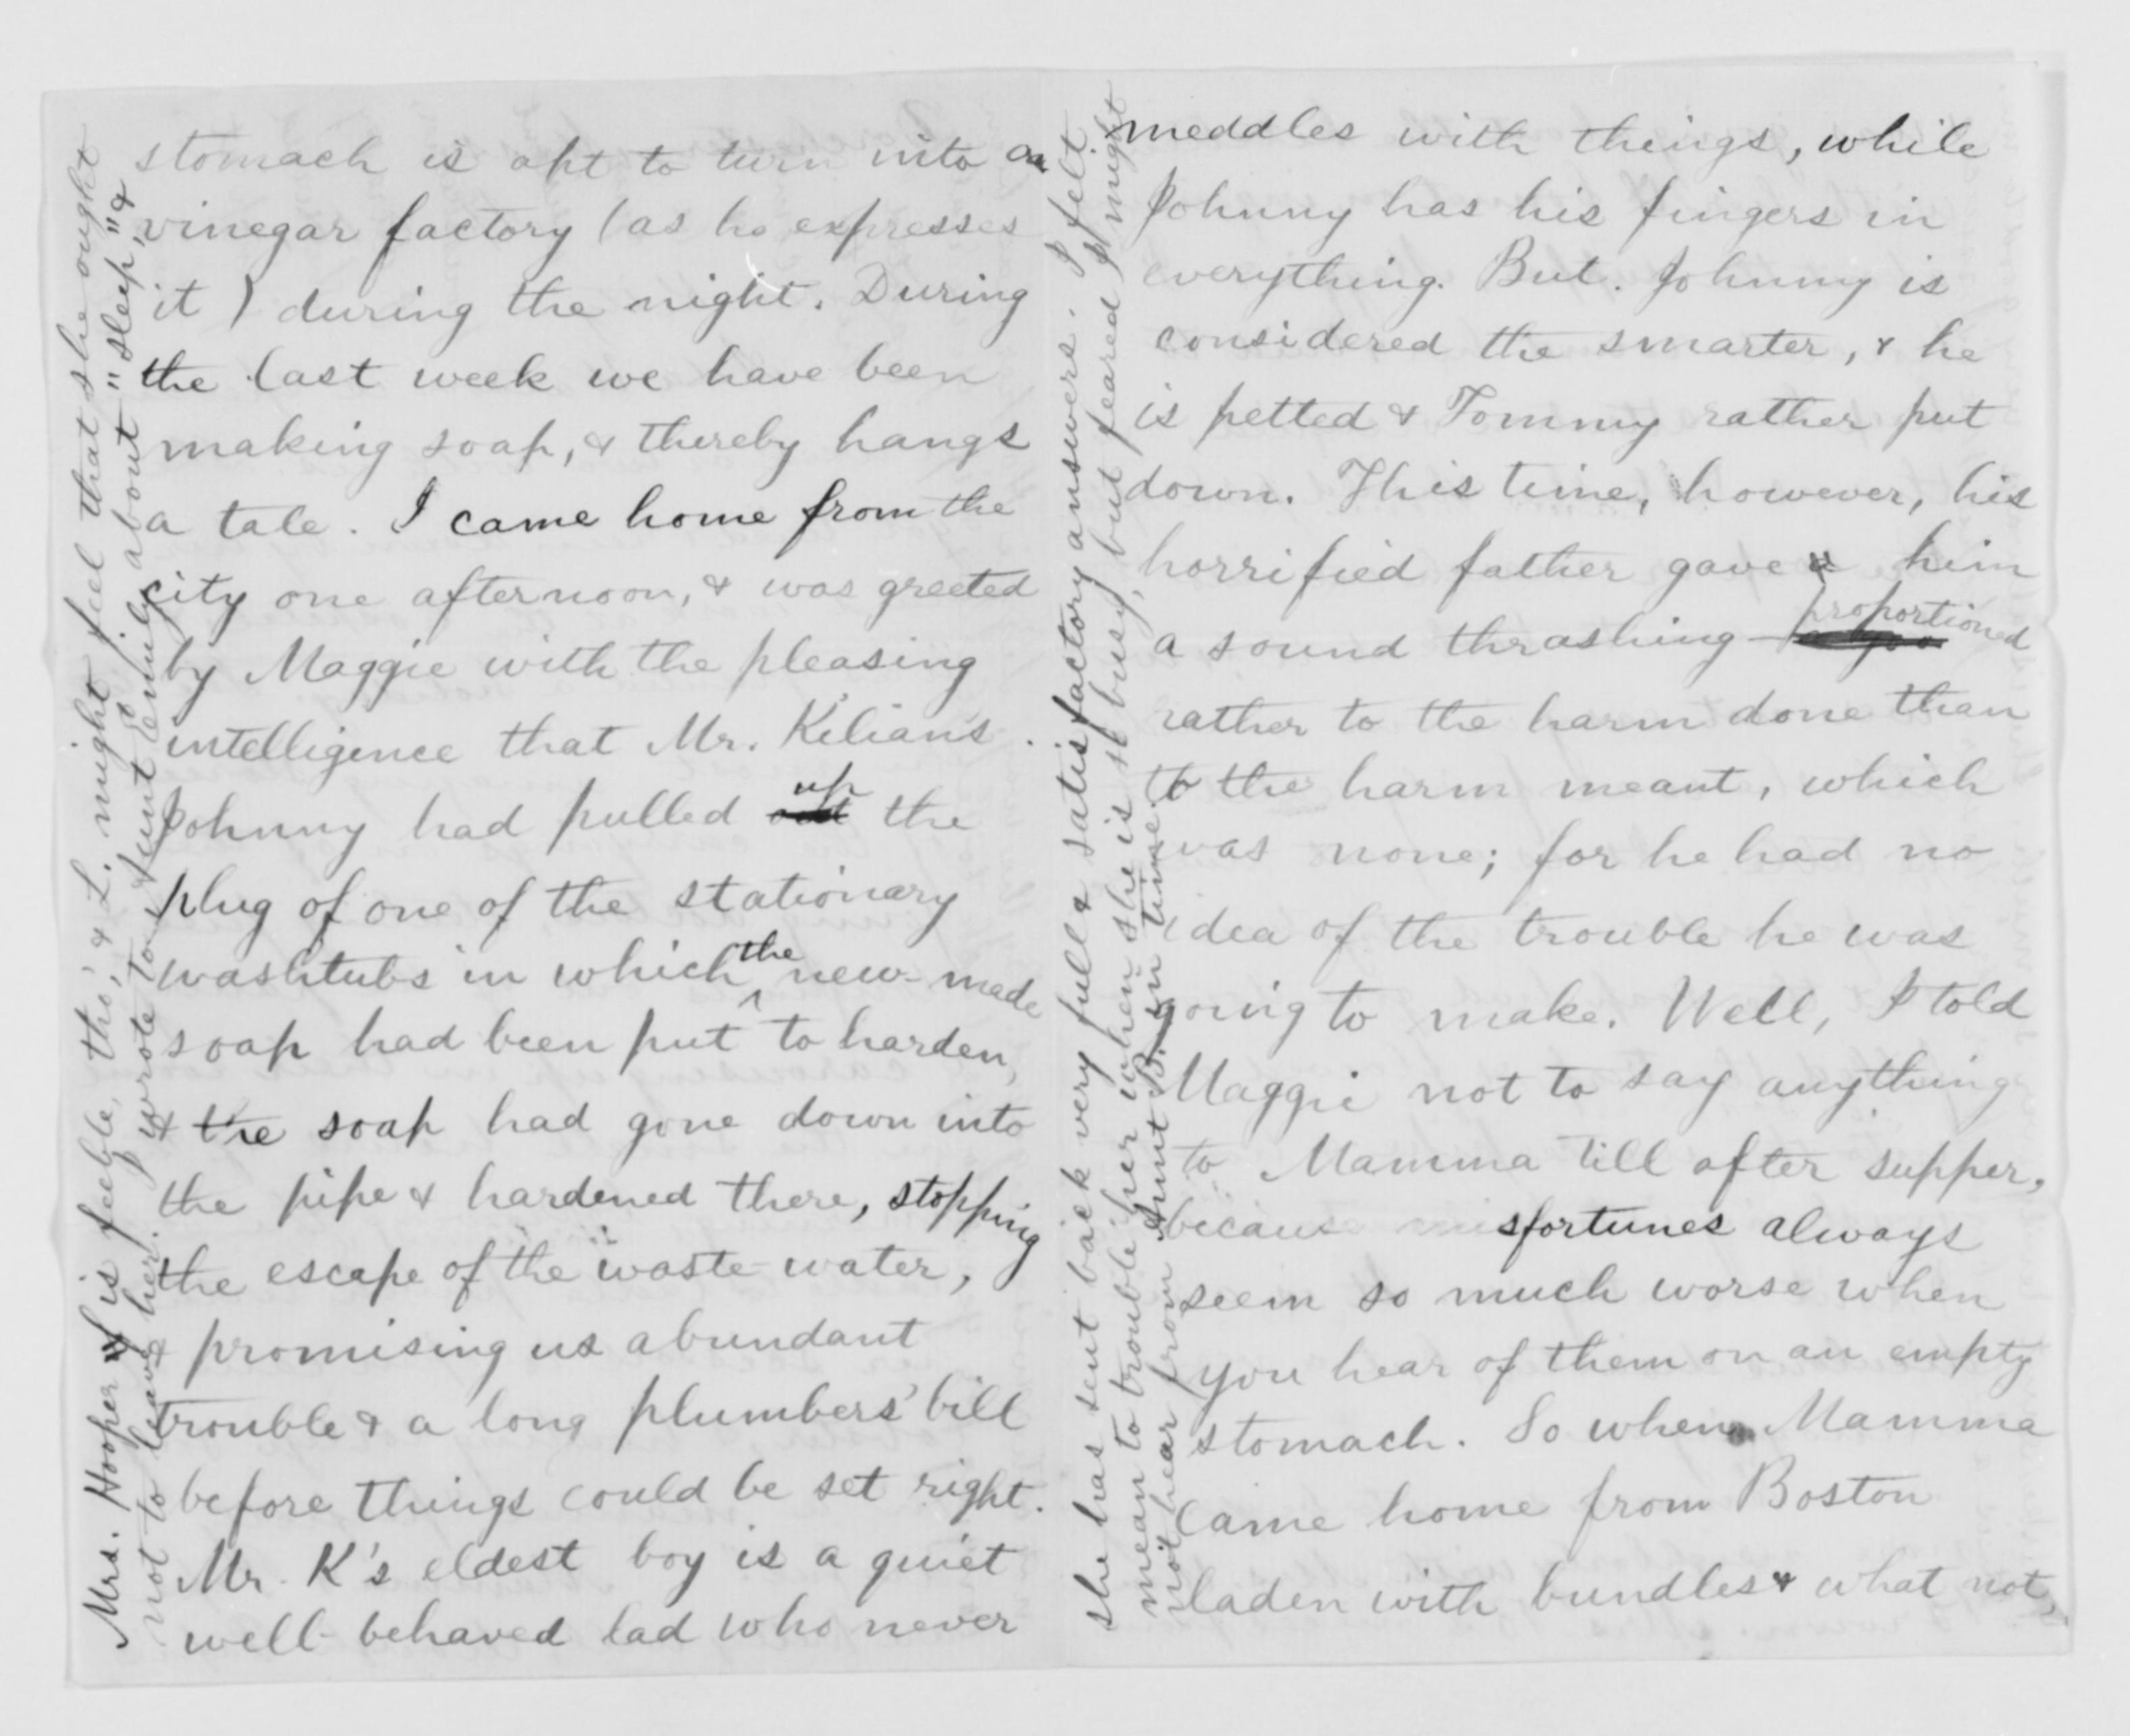 stomach is apt to turn into a
vinegar factory (as he expresses
it) during the night. During
the last week we have been
making soap, & thereby hangs
a tale. I came home from the
city one afternoon, & was greeted
by Maggie with the pleasing
intelligence that Mr. Kilian's
Johnny had pulled up the
plug of one of the stationary
washtubs in which the new-made
soap had been put to harden,
& the soap had gone down into
the pipe & hardened there, stopping
the escape of the waste water,
& promising us abundant
trouble & a long plumbers' bill
before things could be set right.
Mr. K's eldest boy is a quiet
well-behaved lad who never
meddles with things, while
Johnny has his fingers in
everything. But. Johnny is
considered the smarter, & he
is petted & Tommy rather put
down. This time, however, his
horrified father gave him
a sound thrashing – proportioned
rather to the harm done than
to the harm meant, which
was none; for he had no
idea of the trouble he was
going to make. Well, I told
Maggie not to say anything
to Mamma till after supper,
because misfortunes always
seem so much worse when
you hear of them on an empty
stomach. So when Mamma
came home from Boston
laden with bundles & what not,
Mrs. Hooper is feeble, tho', & L. might feel that she ought
not to leave her. I wrote to Aunt Emily about "sleep," &
she has sent back very full & satisfactory answers. I felt
mean to trouble her when she is so busy, but feared I might
not hear from Aunt B. in time.